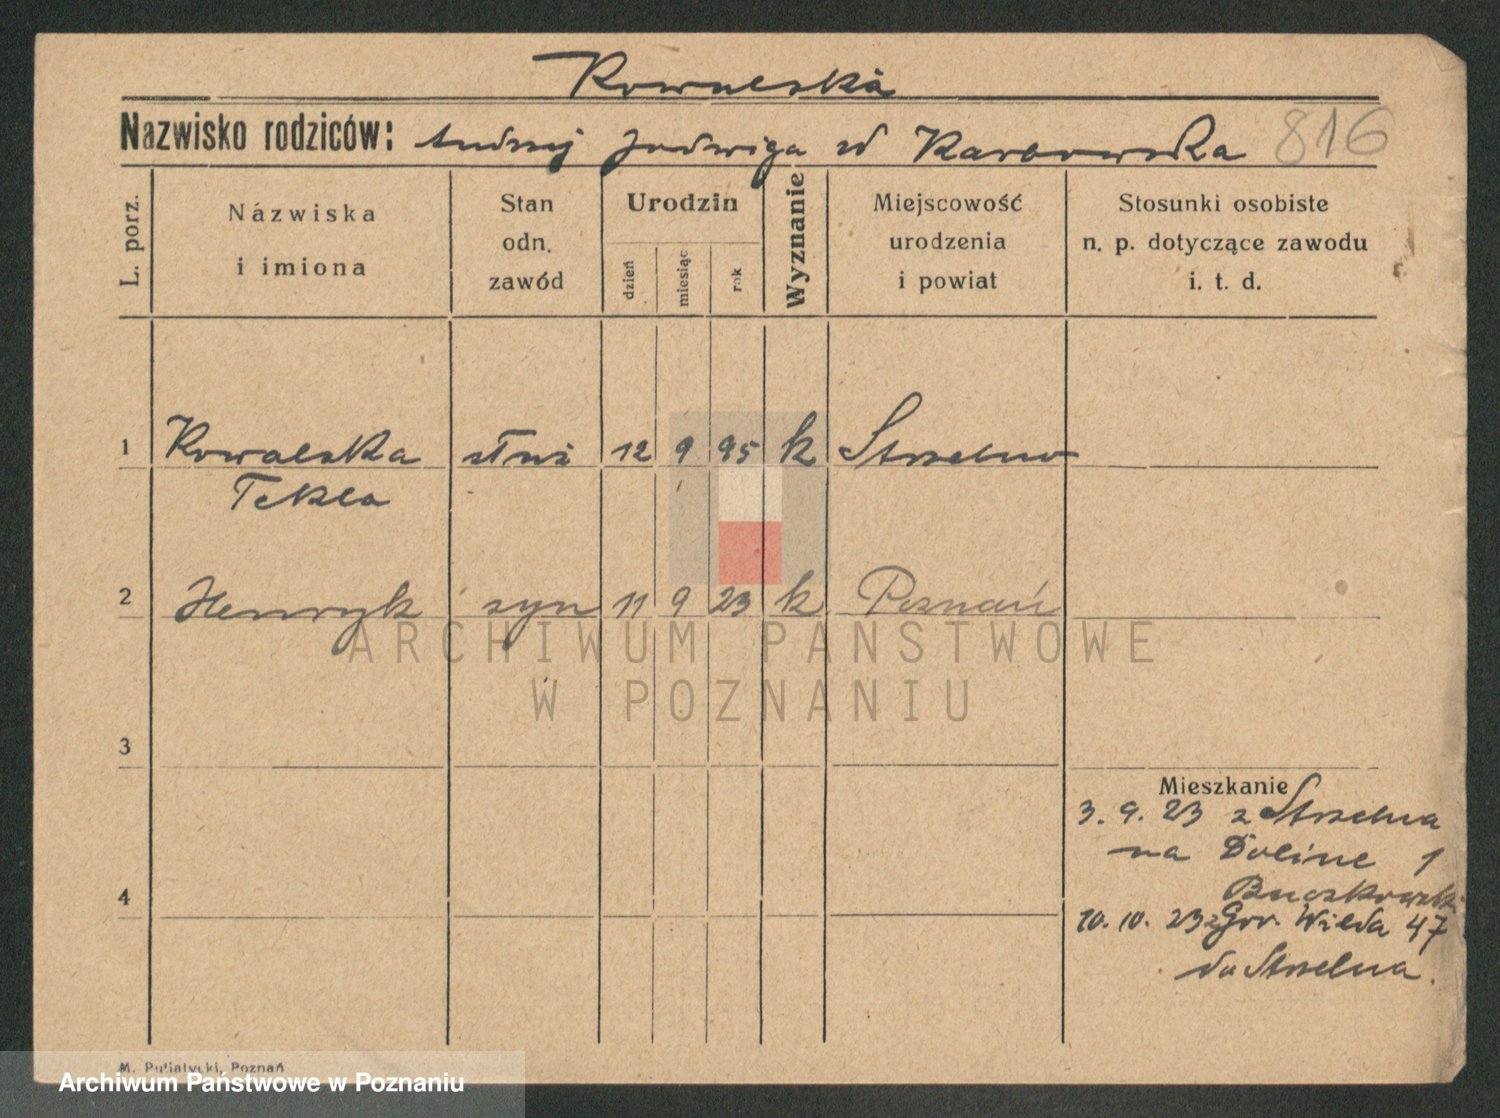 Kowalska
Nazwisko rodziców: Andrzej Jadwiga zd Karbowska 816
L. porz.
Názwiska
i imiona
Stan
odn.
zawód
Urodzin
dzień
miesiąc
rok
Wyznanie
Miejscowość
urodzenia
i powiat
Stosunki osobiste
n. p. dotyczące zawodu
i. t. d.
1 Kowalska służ 12 9 95 k Strzelno
Tekla
2 Henryk syn 11 9 23 k Poznań
ARCHIWUM PAŃSTWOWE
W POZNANIU
3
Mieszkanie
3. 9. 23 z Strzelna
na Dolinę 1
4
10. 10. 23 z Gór. Wilda 47
do Strzelna.
M. Putiatycki, Poznań
Archiwum Państwowe w Poznaniu